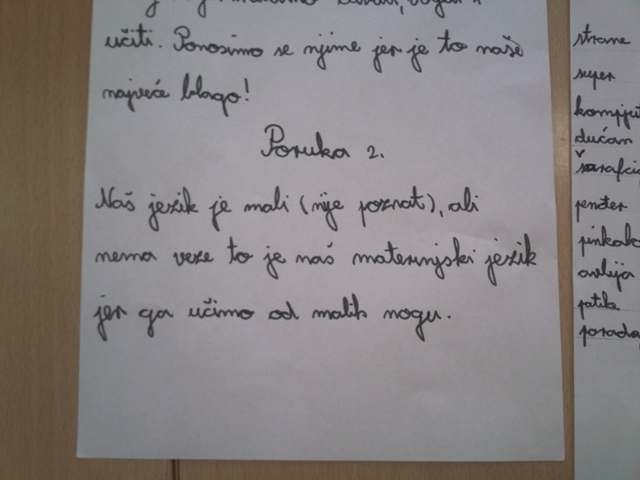 učiti. Ponosimo se njime jer je to naše
najveće blago!
Poruka 2.
Naš jezik je mali (nije poznat), ali
nema veze to je naš materinjski jezik
jer ga učimo od malih nogu.
strane
super
dućan
penđer
avlija
patike